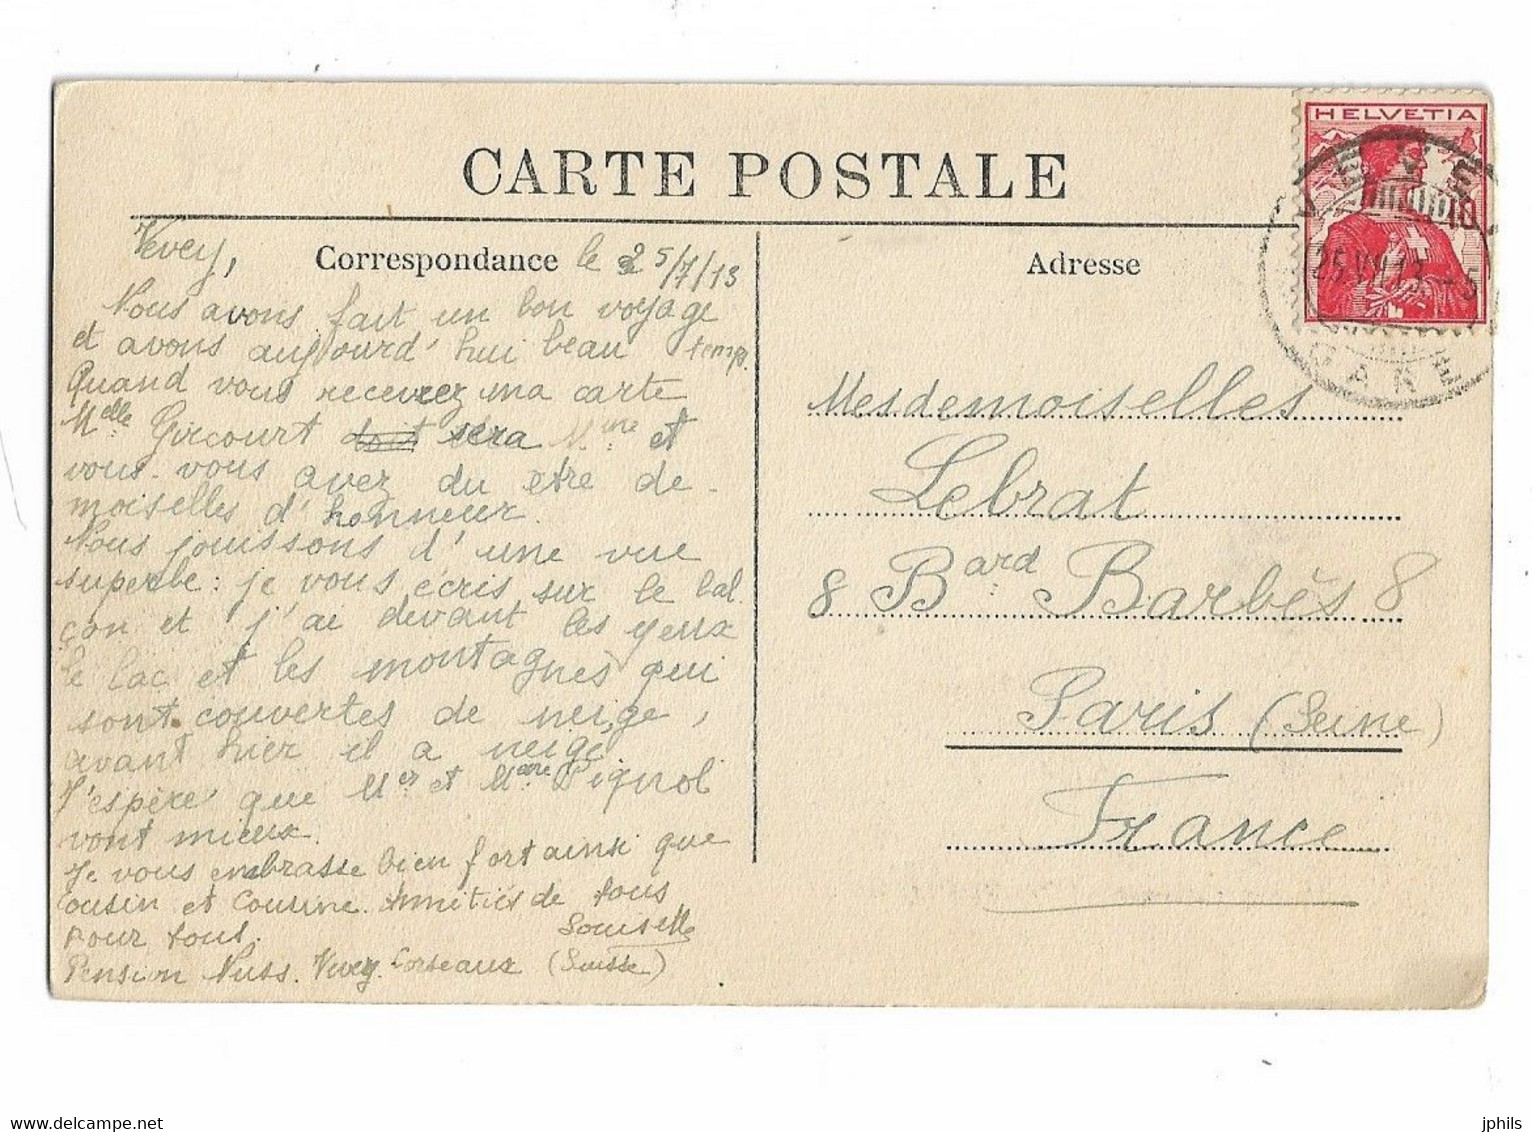 CARTE POSTALE
HELVETIA
10
VEVEY
25.VII.13.-5
GARE
Vevey,
Correspondance
le 25/7/13
Nous avons fait un bon voyage
et avons aujourd'hui beau temps.
Quand vous recevrez ma carte
Melle Gircourt doit sera Mme et
vous-vous avez du etre de-
moiselles d'honneur.
Nous jouissons d'une vue
superbe: je vous écris sur le bal
çon et j'ai devant les yeux
le lac et les montagnes qui
sont couvertes de neige,
avant hier il a neigé
J'espère que Mer et Mme Pignol
vont mieux.
Je vous embrasse bien fort ainsi que
Cousin et Cousine. Amitiés de tous
pour tous.
Pension Nuss. Vevey-Corseaux (Suisse)
Adresse
Mesdemoiselles
Lebrat
8 Bard Barbès 8
Paris (Seine)
France
www.delcampe.net
jphils